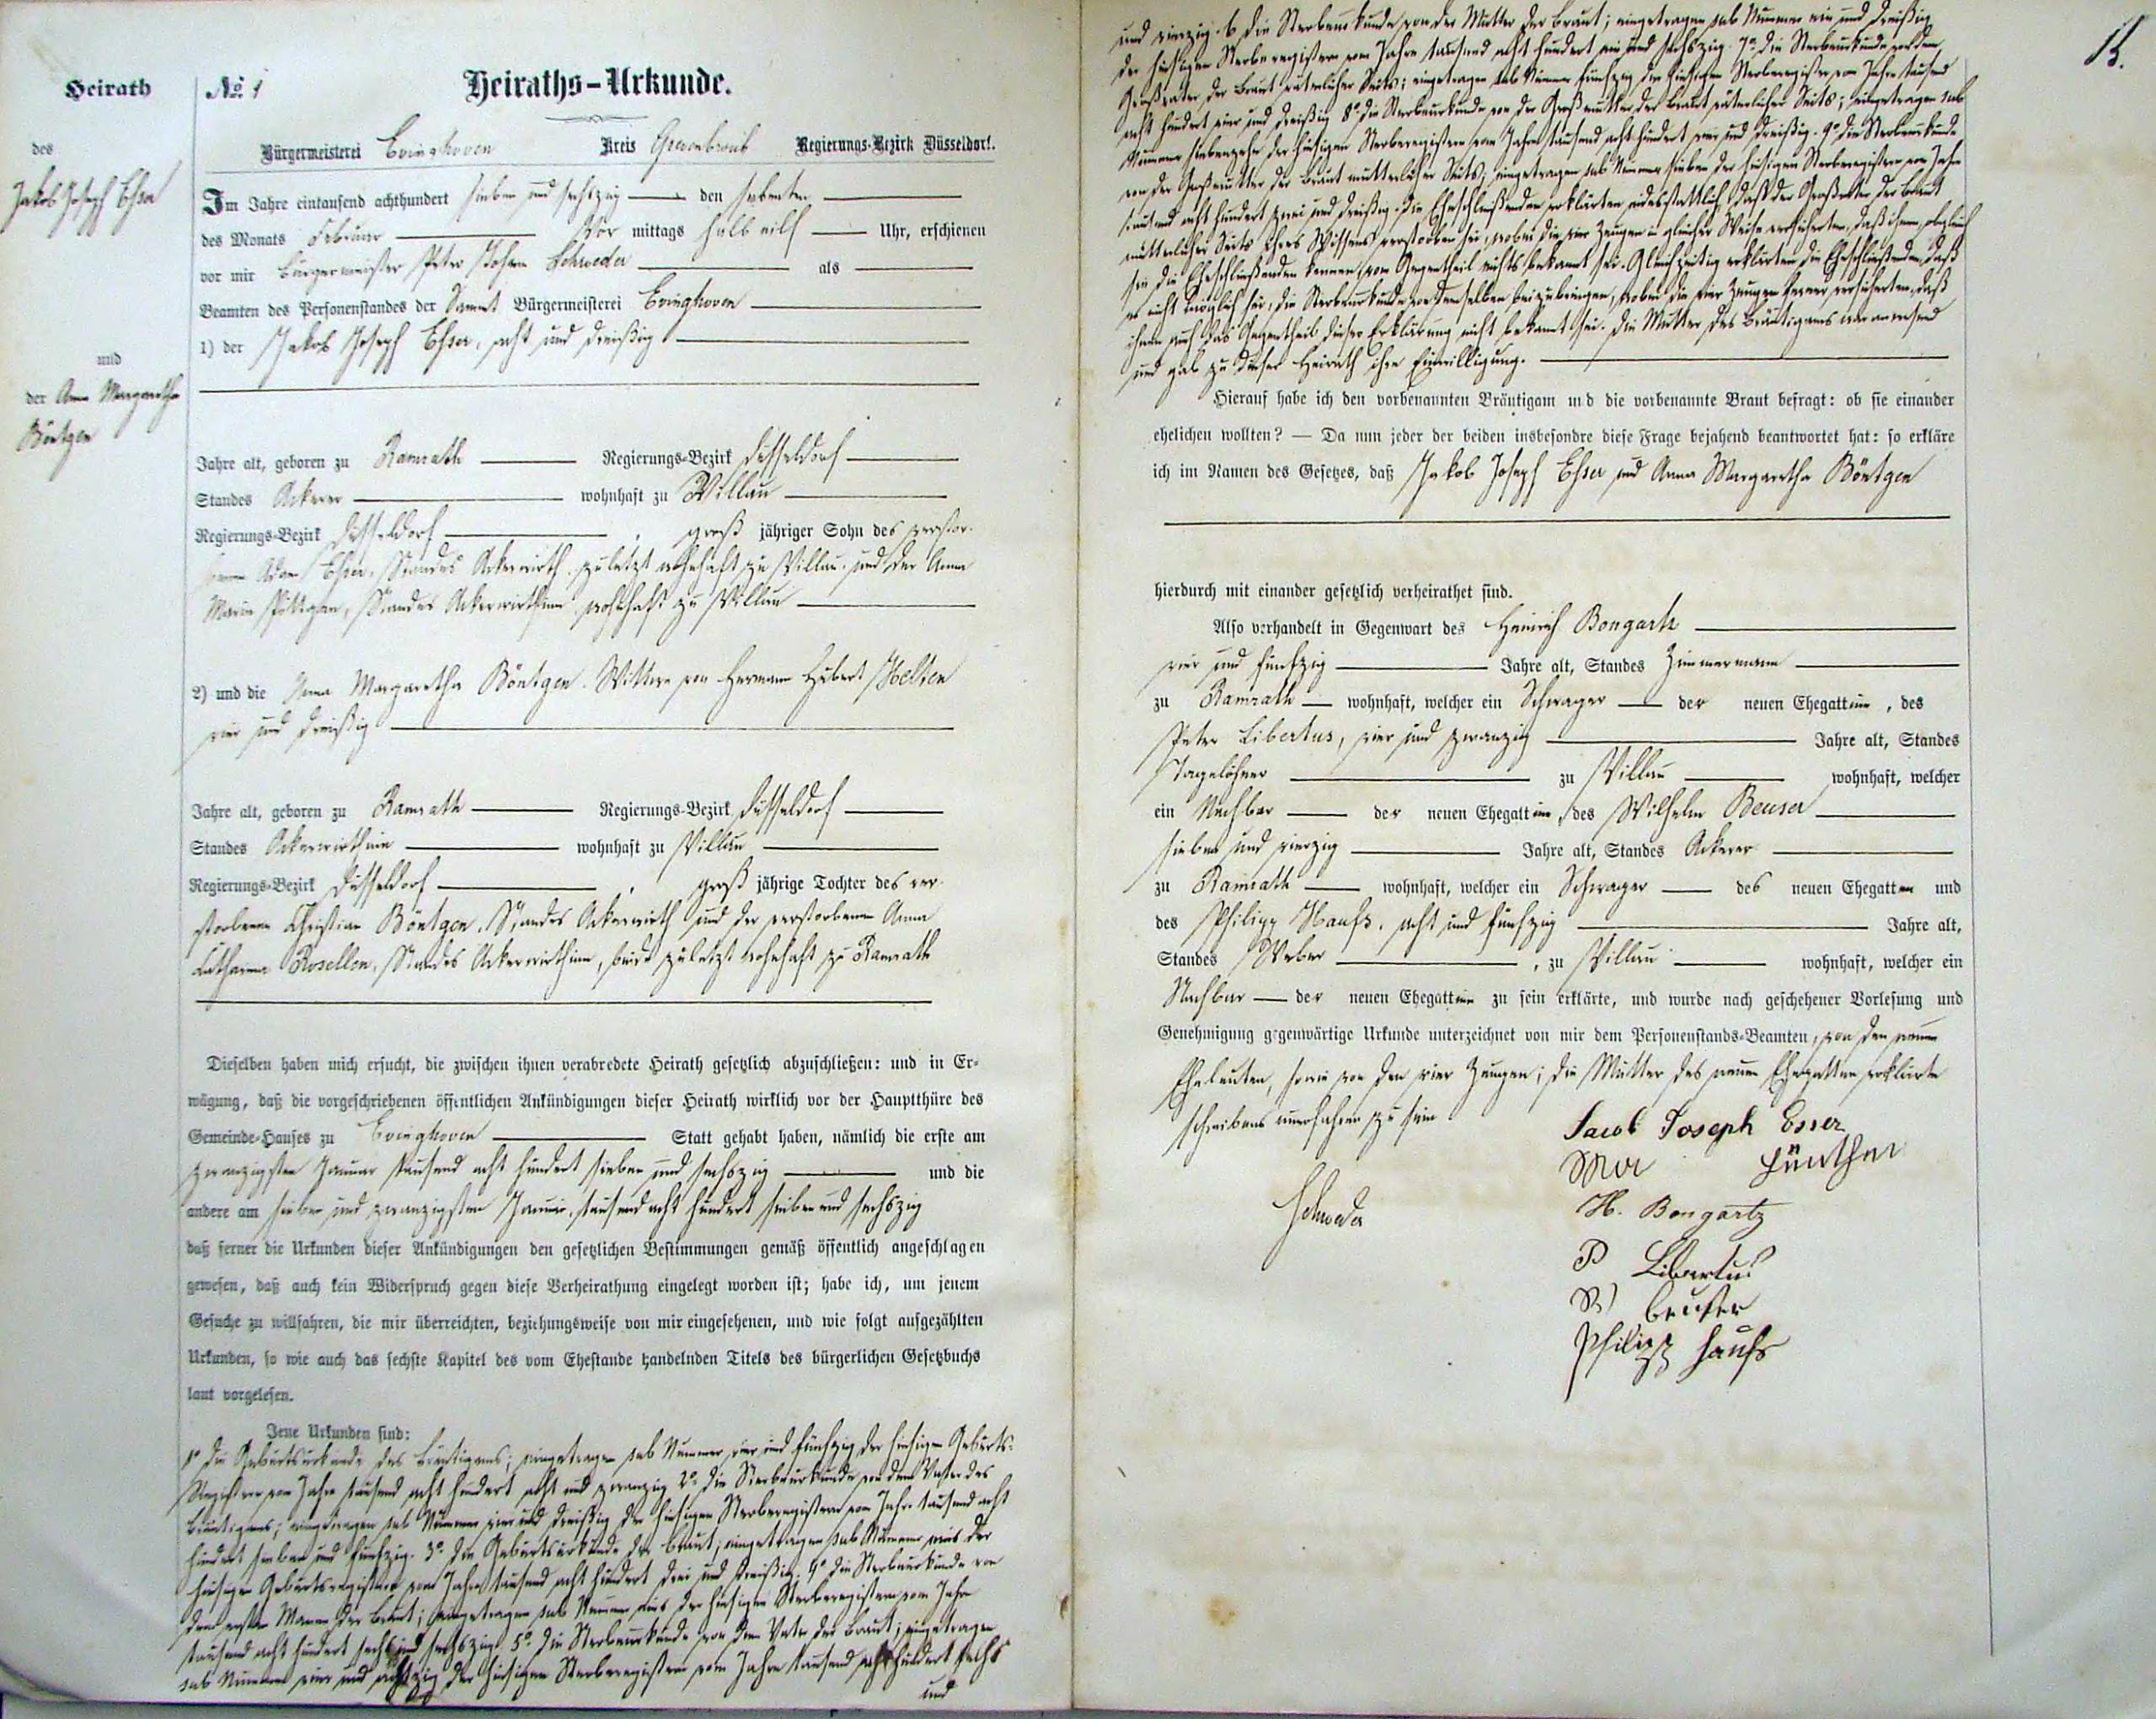 Heirath
des
Jakob Joseph Esser
und
der Anna Margaretha
Böntgen
No. 1 Heiraths-Urkunde.
Bürgermeisterei Evinghoven Kreis Grevenbroich Regierungs-Bezirk Düsseldorf.
Im Jahre eintausend achthundert sieben und sechszig den siebenten
des Monats Februar Vor mittags halb eilf Uhr, erschienen
vor mir Bürgermeister Peter Johann Schroeder als
Beamten des Personenstandes der Sammt Bürgermeisterei Evinghoven
1) der Jakob Joseph Esser, acht und dreißig
Jahre alt, geboren zu Ramrath Regierungs-Bezirk Düsseldorf
Standes Ackerer wohnhaft zu Villau
Regierungs-Bezirk Düsseldorf, groß jähriger Sohn des verstor-
benen Adam Esser, Standes Ackerwirth zuletzt wohnhaft zu Villau und der Anna
Maria Pöttgen, Standes Ackerwirthinn wohnhaft zu Villau
2) und die Anna Margaretha Böntgen, Wittwe von Hermann Hubert Velten
vier und dreißig
Jahre alt, geboren zu Ramrath Regierungs-Bezirk Düsseldorf
Standes Ackerwirthinn wohnhaft zu Villau
Regierungs-Bezirk Düsseldorf, groß jährige Tochter des ver-
storbenen Christian Böntgen, Standes Ackerwirth und der verstorbenen Anna
Catharina Rosellen, Standes Ackerwirthinn, beide zuletzt wohnhaft zu Ramrath
Dieselben haben mich ersucht, die zwischen ihnen verabredete Heirath gesetzlich abzuschließen: und in Er-
wägung, daß die vorgeschriebenen öffentlichen Ankündigungen dieser Heirath wirklich vor der Hauptthüre des
Gemeinde-Hauses zu Evinghoven Statt gehabt haben, nämlich die erste am
zwanzigsten Januar tausend acht hundert sieben und sechszig und die
andere am sieben und zwanzigsten Januar, tausend acht hundert sieben und sechszig
daß ferner die Urkunden dieser Ankündigungen den gesetzlichen Bestimmungen gemäß öffentlich angeschlagen
gewesen, daß auch kein Widerspruch gegen diese Verheirathung eingelegt worden ist; habe ich, um jenem
Gesuche zu willfahren, die mir überreichten, beziehungsweise von mir eingesehenen, und wie folgt aufgezählten
Urkunden, so wie auch das sechste Kapitel des vom Ehestande handelnden Titels des bürgerlichen Gesetzbuchs
laut vorgelesen.
Jene Urkunden sind:
1° die Geburtsurkunde des Bräutigams; eingetragen sub Nummer vier und fünfzig der hiesigen Geburts-
Registern vom Jahre tausend acht hundert acht und zwanzig 2° die Sterbeurkunde von dem Vater des
Bräutigams; eingetragen sub Nummer vier und dreißig der hiesigen Sterberegistern vom Jahre tausend acht
hundert sieben und fünfzig. 3° die Geburtsurkunde der Braut; eingetragen sub Nummer eins der
hiesigen Geburtsregistern vom Jahre tausend acht hundert drei und dreißig. 4° die Sterbeurkunde von
dem ersten Manne der Braut; eingetragen sub Nummer eins der hiesigen Sterberegistern vom Jahre
tausend acht hundert sechs und sechszig. 5° die Sterbeurkunde von dem Vater der Braut; eingetragen
sub Nummer vier und achtzig der hiesigen Sterberegistern vom Jahre tausend acht hundert sechs
und
15.
und vierzig. 6 die Sterbeurkunde von der Mutter der Braut; eingetragen sub Nummer ein und dreißig
der hiesigen Sterberegistern vom Jahre tausend acht hundert ein und sechszig. 7° die Sterbeurkunde von dem
Großvater der Braut väterlicher Seits; eingetragen sub Nummer fünfzig der hiesigen Sterberegister vom Jahre tausend
acht hundert vier und dreißig 8° die Sterbeurkunde von der Großmutter der Braut väterlicher Seits; eingetragen sub
Nummer siebenzehn der hiesigen Sterberegistern vom Jahre tausend acht hundert vier und dreißig. 9° die Sterbeurkunde
von der Großmutter der Braut mütterlicher Seits; eingetragen sub Nummer sieben der hiesigen Sterberegistern vom Jahre
tausend acht hundert zwei und dreißig. Die Eheschließenden erklärten eidesstattlich daß der Großvater der Braut
mütterlicher Seits ihres Wissens verstorben sei, wobei die vier Zeugen in gleicher Weise versicherten, daß ihnen, obgleich
sie die Eheschließenden kennen, vom Gegentheil nichts bekannt sei. Gleichzeitig erklärten die Eheschließenden, daß
es nicht möglich sei, die Sterbeurkunde von demselben beizubringen, wobei die vier Zeugen ferner versicherten, daß
ihnen auch das Gegentheil dieser Erklärung nicht bekannt sei. Die Mutter des Bräutigams war anwesend
und gab zu dieser Heirath ihre Einwilligung.
Hierauf habe ich den vorbenannten Bräutigam und die vorbenannte Braut befragt: ob sie einander
ehelichen wollten? — Da nun jeder der beiden insbesondre diese Frage bejahend beantwortet hat: so erkläre
ich im Namen des Gesetzes, daß Jakob Joseph Esser und Anna Margaretha Böntgen
hierdurch mit einander gesetzlich verheirathet sind.
Also verhandelt in Gegenwart des Heinrich Bongartz
vier und fünfzig Jahre alt, Standes Zimmermann
zu Ramrath wohnhaft, welcher ein Schwager der neuen Ehegattinn, des
Peter Libertus, vier und zwanzig Jahre alt, Standes
Tagelöhner zu Villau wohnhaft, welcher
ein Nachbar der neuen Ehegattinn, des Wilhelm Beuser
sieben und vierzig Jahre alt, Standes Ackerer
zu Ramrath wohnhaft, welcher ein Schwager des neuen Ehegatten und
des Philipp Haufs, acht und fünfzig Jahre alt,
Standes Weber, zu Villau wohnhaft, welcher ein
Nachbar der neuen Ehegattinn zu sein erklärte, und wurde nach geschehener Vorlesung und
Genehmigung gegenwärtige Urkunde unterzeichnet von mir dem Personenstands-Beamten, von den neuen
Eheleuten, sowie von den vier Zeugen; die Mutter des neuen Ehegatten erklärte
schreibens unerfahren zu sein
Jacob Joseph Esser
Schroeder
H. Bongartz
P Libertus
W beuser
Philipp Haufs